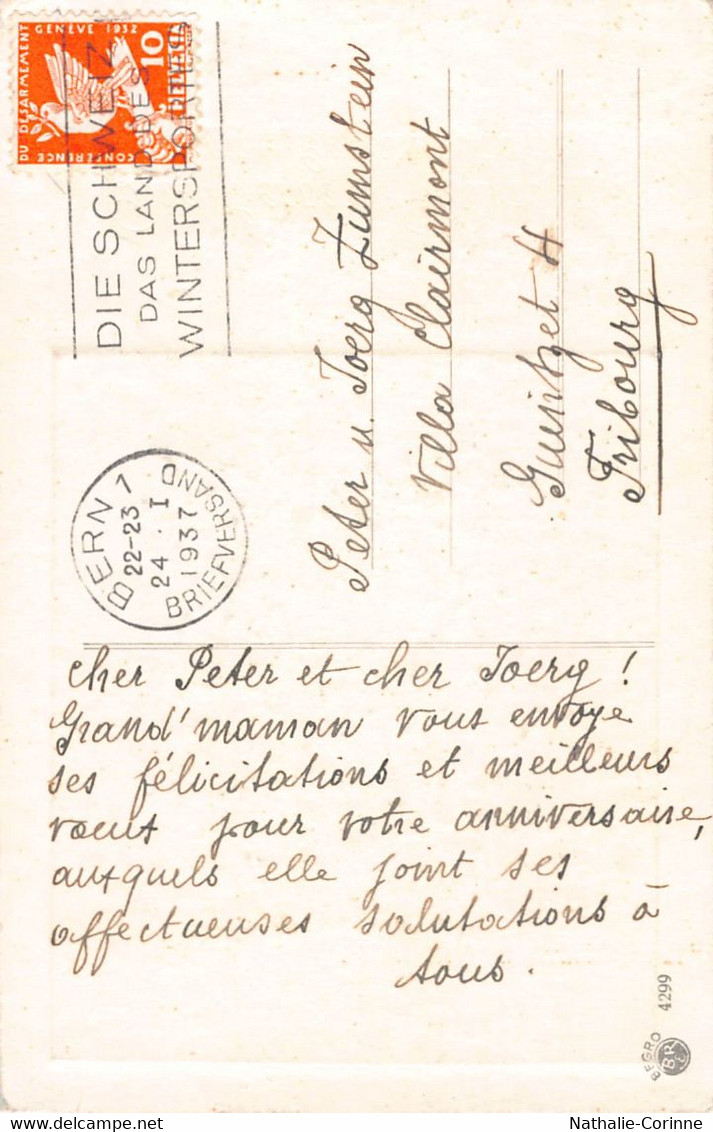 CONFÉRENCE
DU DÉSARMEMENT
GENÈVE 1932
10
HELVETIA
DIE SCHWEIZ
DAS LAND DES
WINTERSPORTES
BERN 1
22-23
24. I
1937
BRIEFVERSAND
Peter u. Joerg Zumstein
Villa Clairmont
Guintzet 4
Fribourg
cher Peter et cher Joerg !
Grand'maman vous envoye
ses félicitations et meilleurs
vœux pour votre anniversaire,
auxquels elle joint ses
affectueuses salutations à
tous.
BEGRO
BR
4299
Nathalie-Corinne